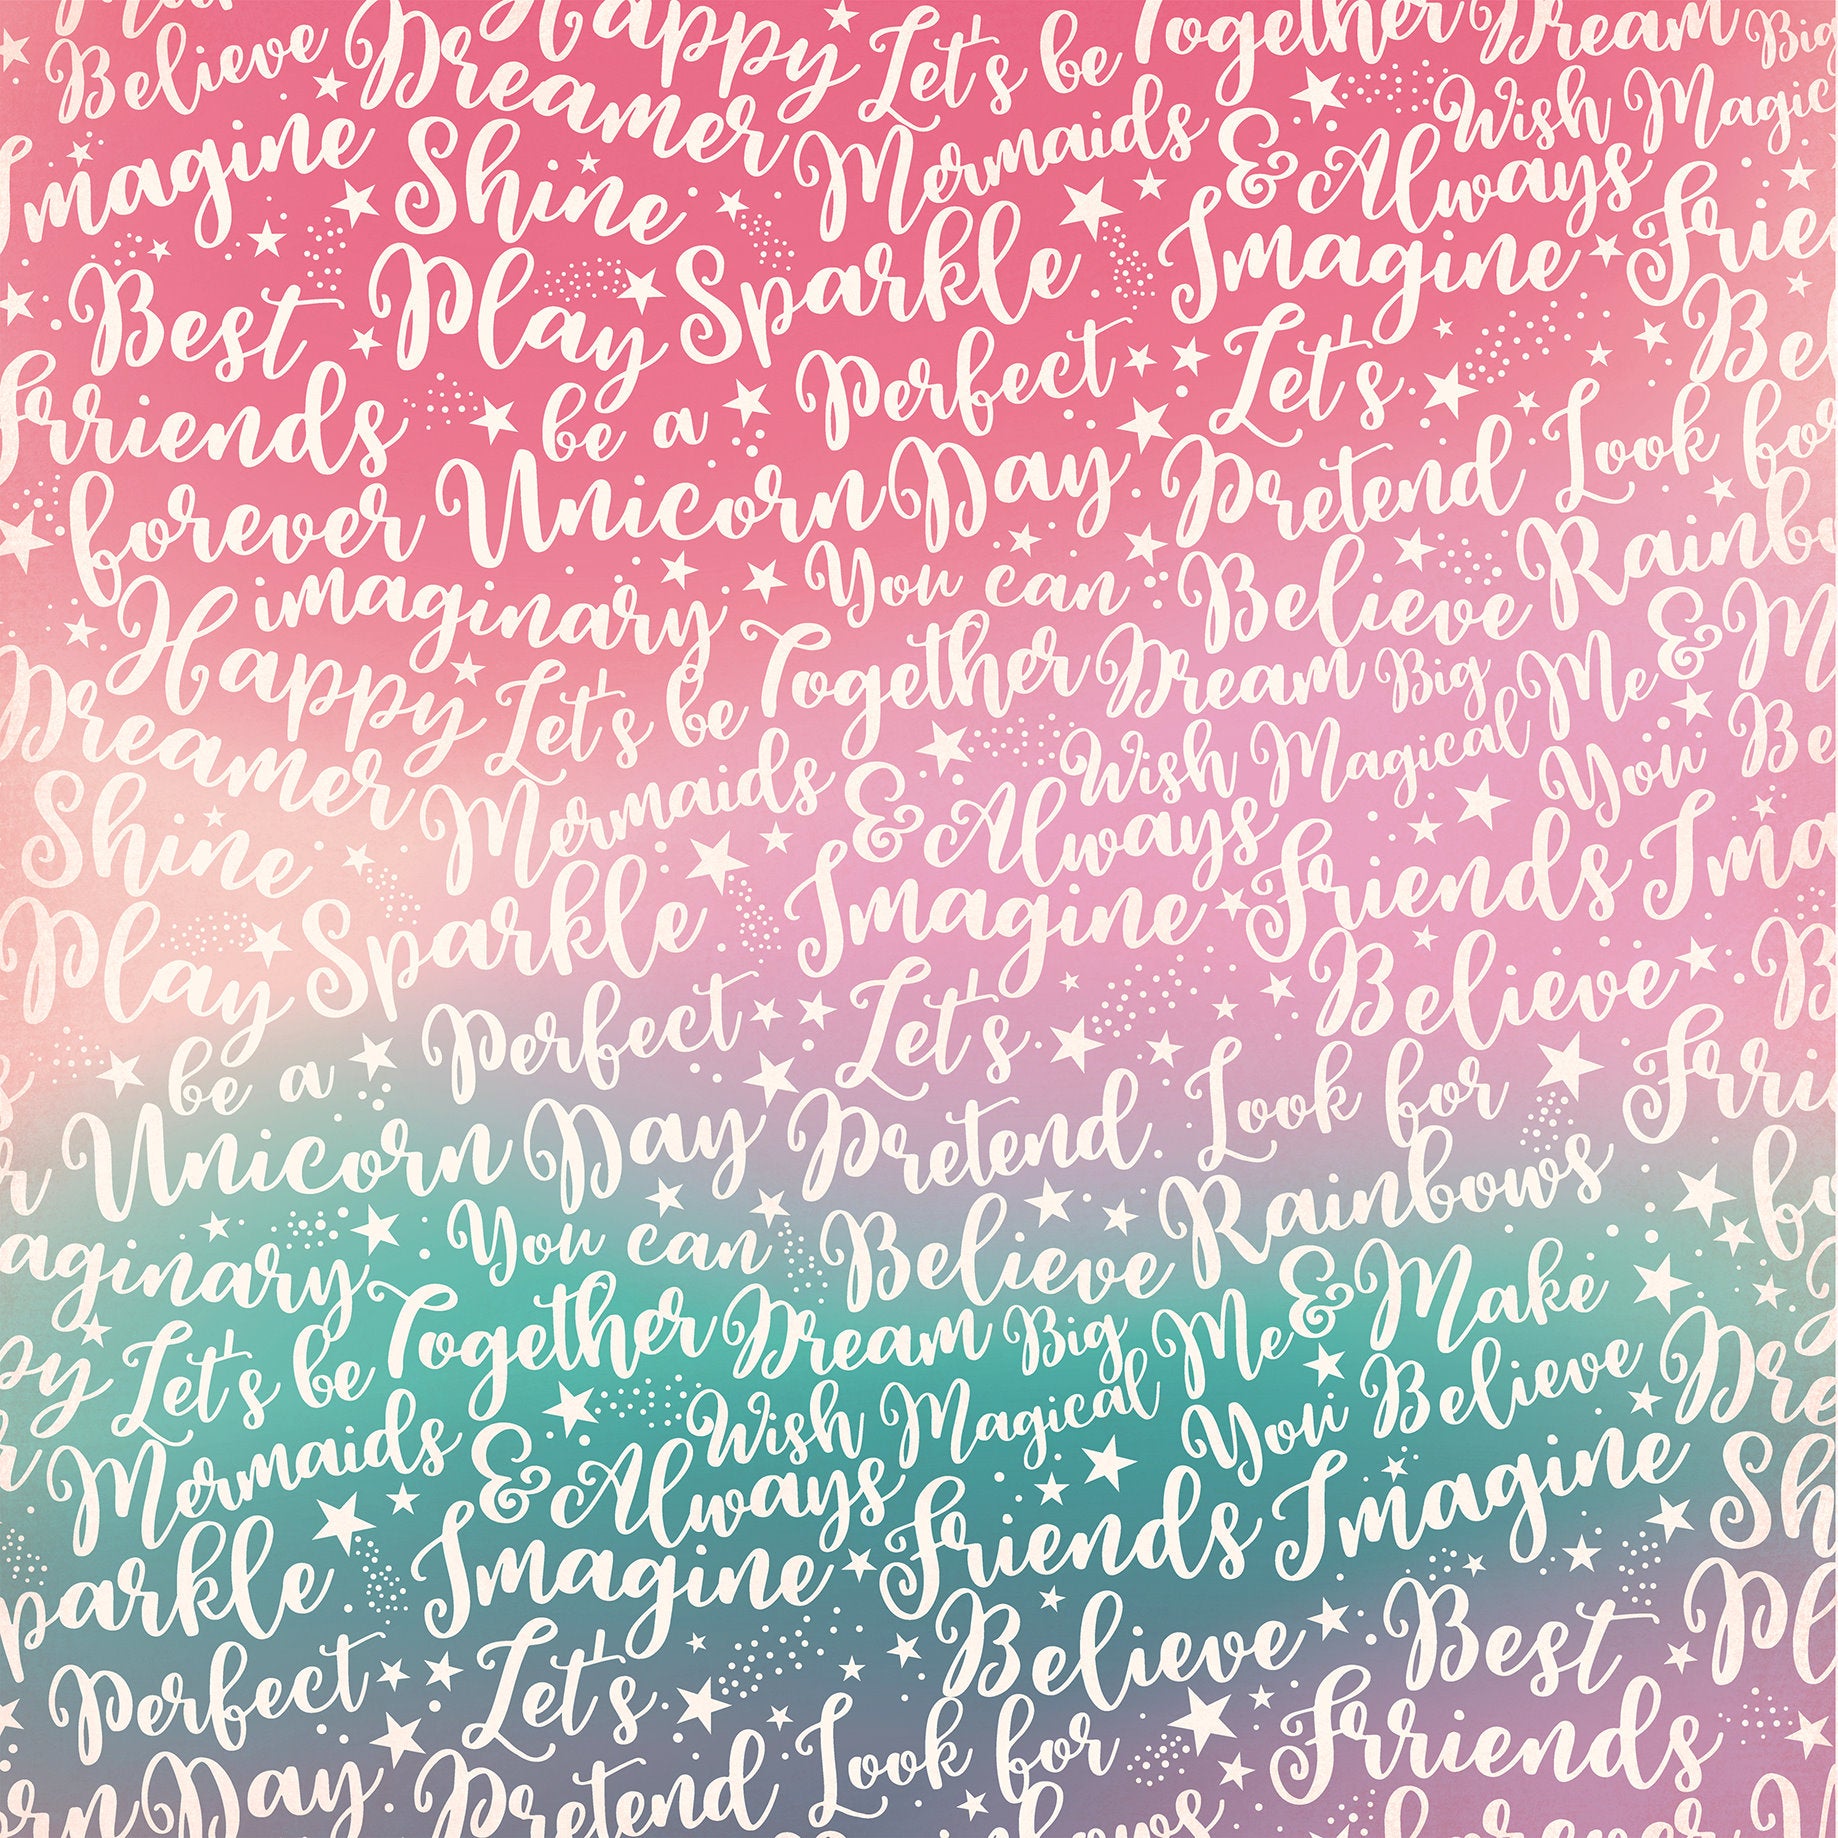 Believe Dreamer Happy Let's be Together Dream Big
Imagine Shine Mermaids & Always Wish Magic
Best Play Sparkle Imagine Frie
Frriends be a Perfect Let's Bel
forever Unicorn Day Pretend Look for
imaginary You can Believe Rainbo
Happy Let's be Together Dream Big Me & M
Dreamer Mermaids & Always Wish Magical You Be
Shine Sparkle Imagine Friends Ima
Play Perfect Let's Believe B
be a Pretend Look for Frri
Unicorn Day Believe Rainbows fo
aginary You can Dream Big Me & Make
py Let's be Together Wish Magical You Believe Dre
Mermaids & Always Friends Imagine Sh
parkle Imagine Believe Best Pl
Perfect Let's Look for Frriends
rn Day Pretend